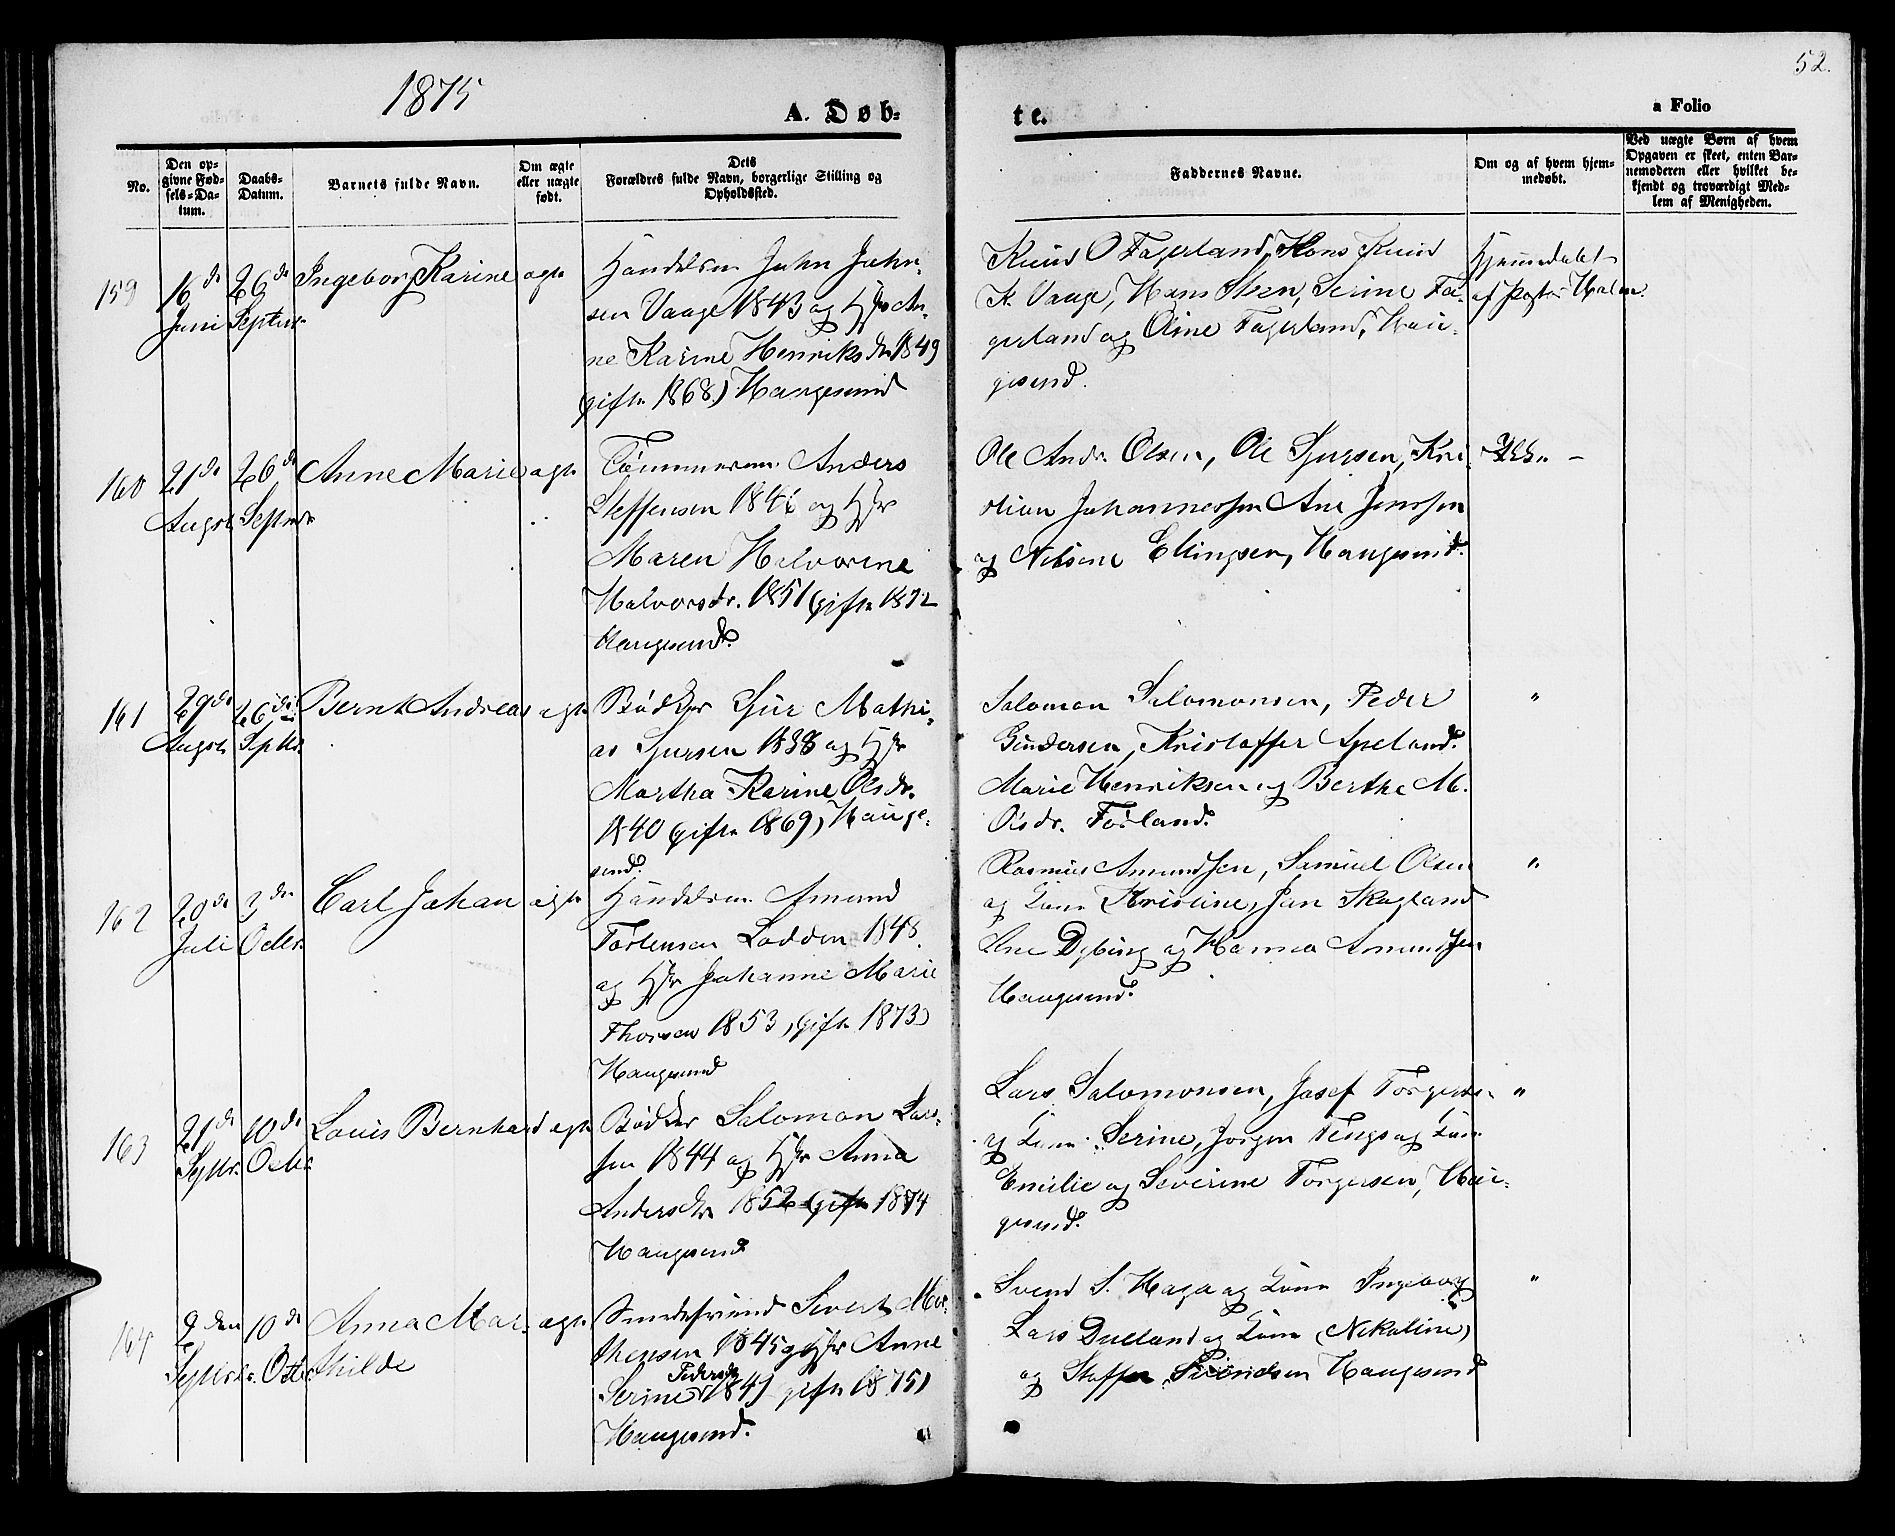 1875
52.
A. Døb-
te.
a Folio
No.
Den op-
givne Fød-
sels-Da-
tum.
Daabs-
Datum.
Barnets fulde Navn.
Om ægte
eller uægte
født.
Dets
Forældres fulde Navn, borgerlige Stilling og
Opholdssted.
Faddernes Navne.
Om og af hvem hjem-
medøbt.
Ved uægte Børn af hvem
Opgaven er skeet, enten Bar-
nemoderen eller hvilket be-
kjendt og troværdigt Med-
lem af Menigheden.
159
16de
Juni
26de
Septbr.
Ingeborg Karine
ægte
Handelsm. John John-
sen Vaage 1843 og Hstr An-
ne Karine Henriksdr 1849
(gifte 1868) Haugesund
Knud O Fagerland, Hans Knud
K. Vaage, Hans Steen, Serine Fa-
gerland og Oline Fagerland, Hau-
gesund.
Hjemmedøbt
af Pastor Halm.
160
21de
Augst.
26de
Septmbr
Anne Marie
ægte
Tømmerm. Anders
Steffensen 184 og Hstr
Maren Halvorine
Halvorsdr. 1851 (gifte 1872
Haugesund.
Ole Andr. Olsen, Ole Sjursen, Kri-
stian Johannessen Ane Jenssen
og Nilsine Ellingsen, Haugesund.
161
29de
Augst.
26de
Septbr.
Bernt Andreas
ægte
Bødker Sjur Mathi-
as Sjursen 1838 og Hstr
Martha Karine Olsdr.
1840 (gifte 1869) Hauge-
sund.
Salomon Salomonsen, Peder
Gundersen, Kristoffer Apeland.
Marie Henriksen og Berthe M.
Olsdr. Førland.
"
162
20de
Juli
3die
Octbr.
Carl Johan
ægte
Handelsm. Amund
Torstensen Lodden 1848.
og Hstr Johanne Marie
Thorsen 1853, (gifte 1873)
Haugesund
Rasmus Amundsen, Samuel Olsen
og Kone Kristine, Jan Skogland
Ane Dybing og Hanna Amundsen
Haugesund.
"
163
21de
Septbr.
10de
Octbr.
Louis Bernhard
ægte
Bødker Salomon Lars-
sen 1844 og Hstr Anna
Andersdtr 1852 (gifte 1874
Haugesund
Lars Salomonsen, Josef Torgersen
og Kone Serine, Jorgen Tengs og Kone
Emilie og Severine Torgersen, Hau-
gesund.
"
164
2den
Septbr.
10de
Octbr.
Anna Mat-
hilde
ægte
Sundsfrund Sivert Mor-
thensen 1845 og Hstr Anne
Serine Pedersdr 1841 gifte 1875)
Haugesund.
Svend S. Haga og Kone Ingeborg
Lars Dueland og Kone (Nikoline)
og Steffen Svendsen Haugesund
"